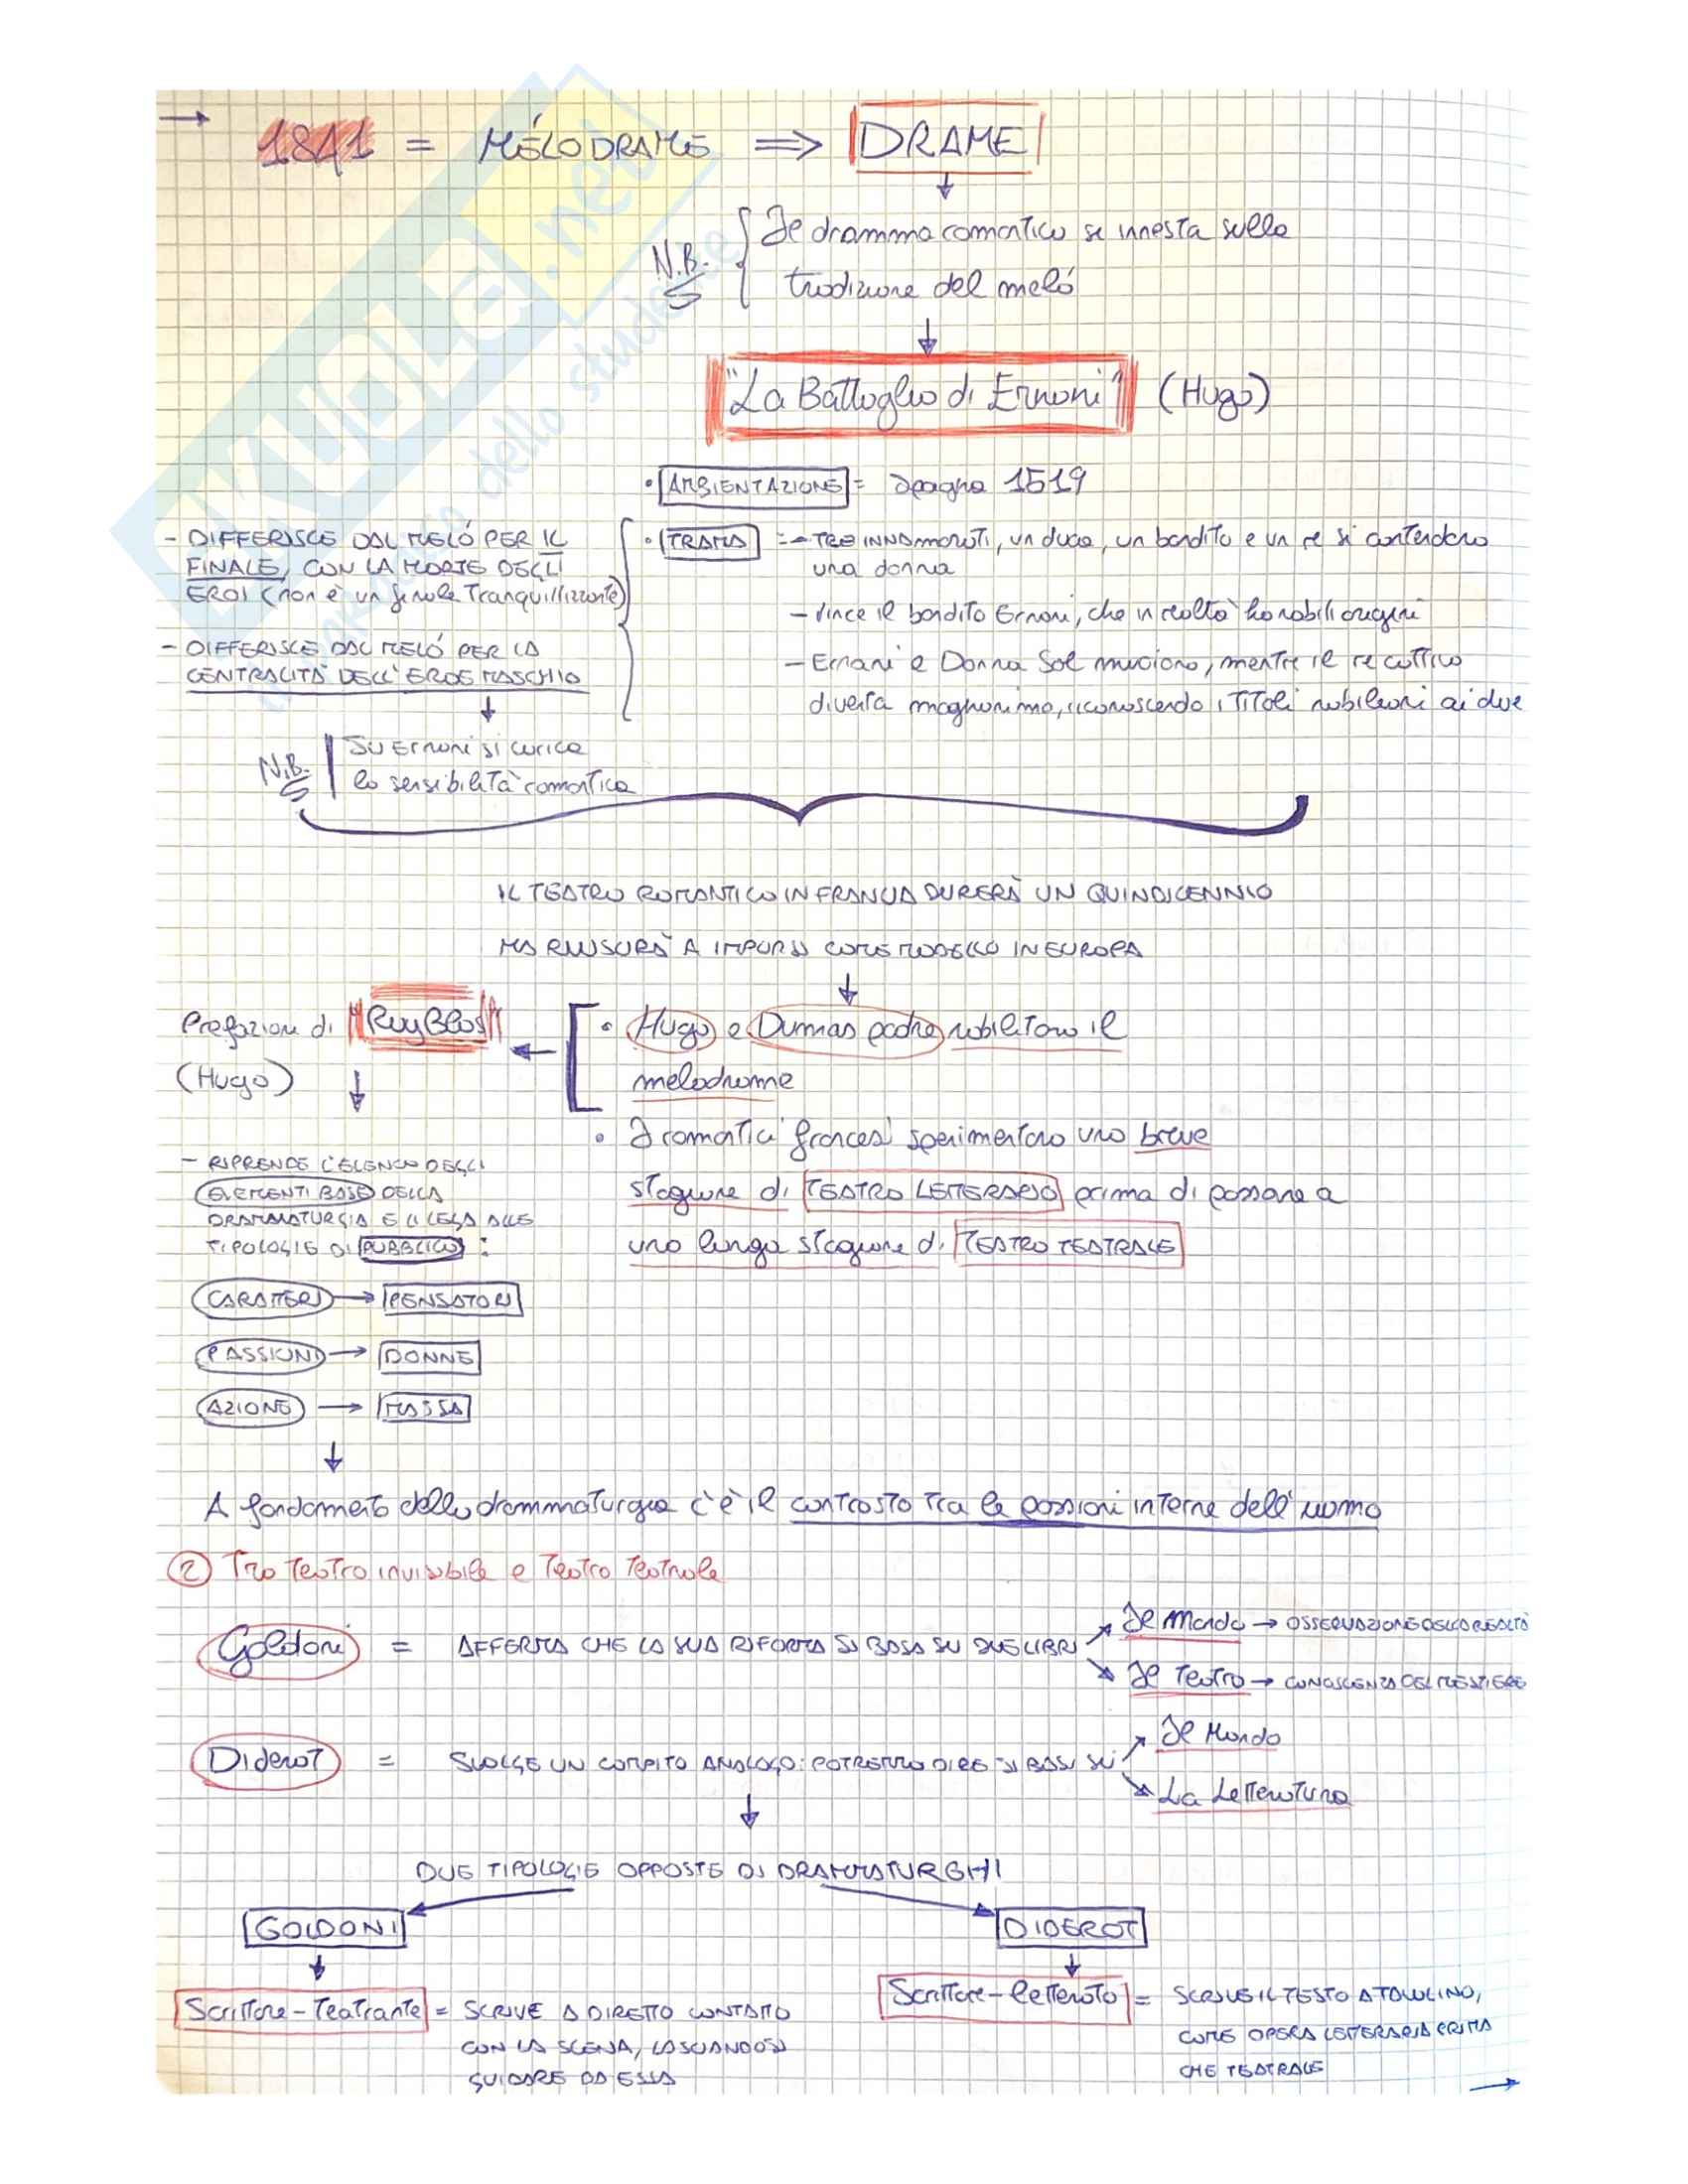 → 1841 = MÉLODRAME ⇒ DRAME
N.B. Il dramma romantico si innesta sulla
tradizione del meló
"La Battaglia di Ernani" (Hugo)
• AMBIENTAZIONE = Spagna 1519
• TRAMA = - TRE INNAMORATI, un duca, un bandito e un re si contendono
una donna
- Vince il bandito Ernani, che in realtà ha nobili origini
- Ernani e Donna Sol muoiono, mentre il re cattivo
diventa magnanimo, riconoscendo i TITOLI nobiliari ai due
- DIFFERISCE DAL MELÓ PER IL
FINALE, CON LA MORTE DEGLI
EROI (non è un finale Tranquillizzante)
- DIFFERISCE DAL MELÓ PER LA
CENTRALITÀ DELL'EROE MASCHIO
N.B. Su Ernani si carica
la sensibilità romantica
IL TEATRO ROMANTICO IN FRANCIA DURERÀ UN QUINDICENNIO
MA RIUSCIRÀ A IMPORSI COME MODELLO IN EUROPA
• Hugo e Dumas padre nobilitano il
melodrame
• I romantici francesi sperimentano una breve
stagione di TEATRO LETTERARIO prima di passare a
una lunga stagione di TEATRO TEATRALE
Prefazione di "Ruy Blas"
(Hugo)
- RIPRENDE L'ELENCO DEGLI
ELEMENTI BASE DELLA
DRAMMATURGIA E LI LEGA ALLE
TIPOLOGIE DI PUBBLICO:
CARATTERI → PENSATORI
PASSIONI → DONNE
AZIONE → MASSA
A fondamento della drammaturgia c'è il contrasto tra le passioni interne dell'uomo
2 Tra Teatro invisibile e Teatro Teatrale
Goldoni = AFFERMA CHE LA SUA RIFORMA SI BASA SU DUE LIBRI
Il Mondo → OSSERVAZIONE DELLA REALTÀ
Il Teatro → CONOSCENZA DEL MESTIERE
Diderot = SVOLGE UN COMPITO ANALOGO: POTREMMO DIRE SI BASI SU
Il Mondo
La Letteratura
DUE TIPOLOGIE OPPOSTE DI DRAMMATURGHI
GOLDONI
Scrittore-Teatrante = SCRIVE A DIRETTO CONTATTO
CON LA SCENA, LASCIANDOSI
GUIDARE DA ESSA
DIDEROT
Scrittore-Letterato = SCRIVE IL TESTO A TAVOLINO,
COME OPERA LETTERARIA PRIMA
CHE TEATRALE
→